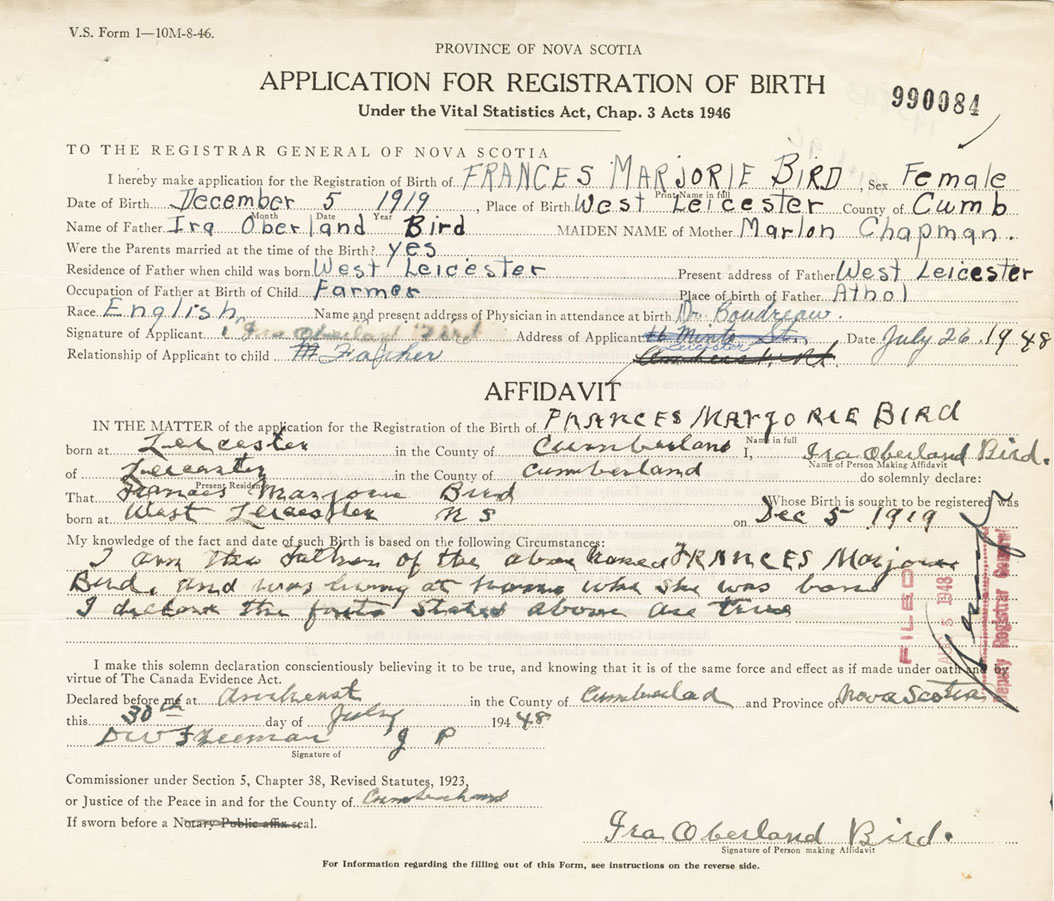 V.S. Form 1—10M-8-46.
PROVINCE OF NOVA SCOTIA
APPLICATION FOR REGISTRATION OF BIRTH
990084
Under the Vital Statistics Act, Chap. 3 Acts 1946
TO THE REGISTRAR GENERAL OF NOVA SCOTIA
I hereby make application for the Registration of Birth of FRANCES MARJORIE BIRD, Sex Female
Print Name in full
Date of Birth December 5 1919, Place of Birth West Leicester County of Cumb
Month Date Year
Name of Father Ira Oberland Bird MAIDEN NAME of Mother Marion Chapman.
Were the Parents married at the time of the Birth? yes
Residence of Father when child was born West Leicester Present address of Father West Leicester
Occupation of Father at Birth of Child Farmer Place of birth of Father Athol
Race English Name and present address of Physician in attendance at birth Dr. Boudreau.
Signature of Applicant Ira Oberland Bird Address of Applicant 11 Minto St. Date July 26, 1948
Leicester
Relationship of Applicant to child Father Amherst
AFFIDAVIT
IN THE MATTER of the application for the Registration of the Birth of FRANCES MARJORIE BIRD
Name in full
born at Leicester in the County of Cumberland I, Ira Oberland Bird.
Name of Person Making Affidavit
of Leicester in the County of Cumberland do solemnly declare:
Present Residence
That Frances Marjorie Bird Whose Birth is sought to be registered was
born at West Leicester N S on Dec 5, 1919
My knowledge of the fact and date of such Birth is based on the following Circumstances:
I am the Father of the above named FRANCES Marjorie
Bird, and was living at home when she was born
I declare the facts stated above are true
FILED
AUG 5 1948
Deputy Registrar General
I make this solemn declaration conscientiously believing it to be true, and knowing that it is of the same force and effect as if made under oath and by
virtue of The Canada Evidence Act.
Declared before me at Amherst in the County of Cumberland and Province of Nova Scotia
this 30th day of July 194 48
D W Freeman J P
Signature of
Commissioner under Section 5, Chapter 38, Revised Statutes, 1923,
or Justice of the Peace in and for the County of Cumberland
If sworn before a Notary Public affix seal.
Ira Oberland Bird.
Signature of Person making Affidavit
For Information regarding the filling out of this Form, see instructions on the reverse side.